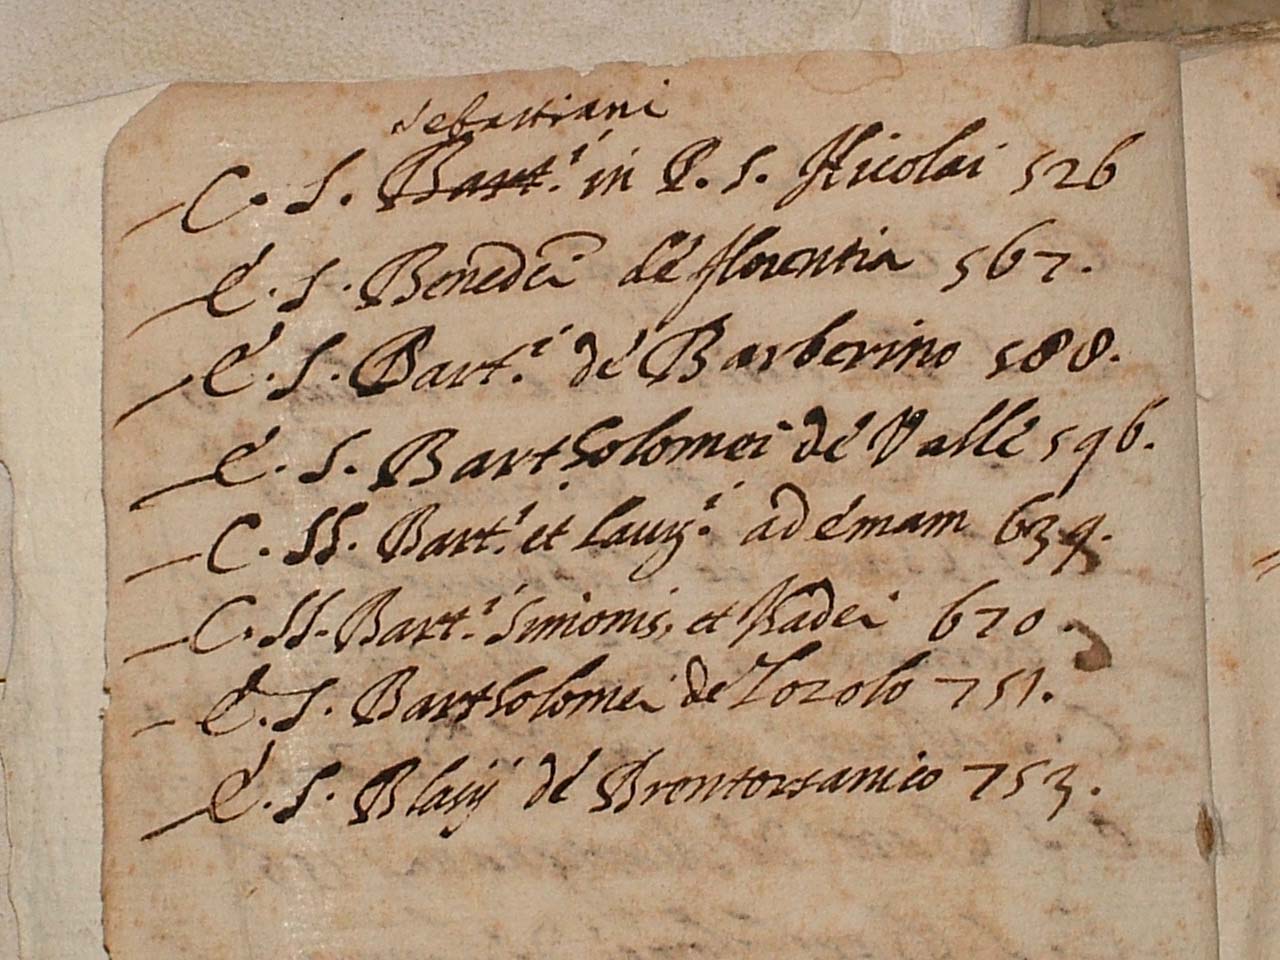 Sebastiani
C. S. Bart.i in P. S. Nicolai 526
E. S. Benedci de florentia 567.
E. S. Bart.i de Barberino 588.
E. S. Bartholomei de Valle 596.
C. SS. Bart.i et Laur.i ad 639.
C. SS. Bart.i Simonis, et Tadei 670.
E. S. Bartholomei de 751.
E. S. Blasij de 753.